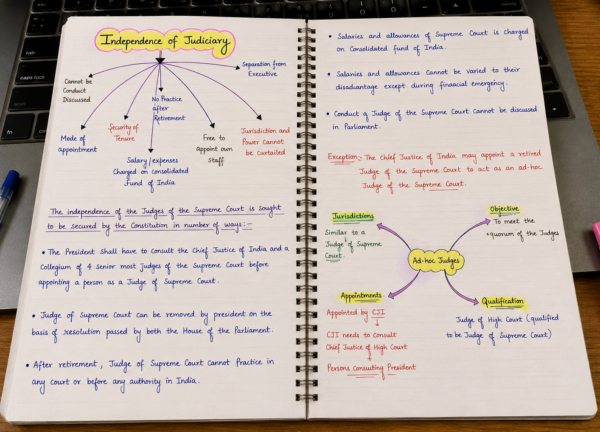 Independence of Judiciary
Cannot be
Conduct
Discussed
Separation from
Executive
No Practice
after
Retirement
Mode of
appointment
Security of
Tenure
Salary/expenses
Charged on consolidated
Fund of India
Free to
appoint own
Staff
Jurisdiction and
Power Cannot
be Curtailed
The independence of the Judges of the Supreme Court is sought
to be secured by the Constitution in number of ways:-
• The President shall have to consult the Chief Justice of India and a
Collegium of 4 Senior most Judges of the Supreme Court before
appointing a person as a Judge of Supreme Court.
• Judge of Supreme Court can be removed by president on the
basis of resolution passed by both the House of the Parliament.
• After retirement, Judge of Supreme Court Cannot Practice in
any court or before any authority in India.
• Salaries and allowances of Supreme Court is charged
on Consolidated fund of India.
• Salaries and allowances Cannot be varied to their
disadvantage except during financial emergency.
• Conduct of Judge of the Supreme Court cannot be discussed
in Parliament.
Exception:- The Chief Justice of India may appoint a retired
Judge of the Supreme Court to act as an ad-hoc
Judge of the Supreme Court.
Jurisdictions
Similar to a
Judge of Supreme
Court.
Objective
To meet the
quorum of the Judges
Ad-hoc Judges
Appointments
Appointed by CJI
↓
CJI needs to consult
Chief Justice of High Court
+
Persons Consulting President
Qualification
Judge of High Court (qualified
to be Judge of Supreme Court)